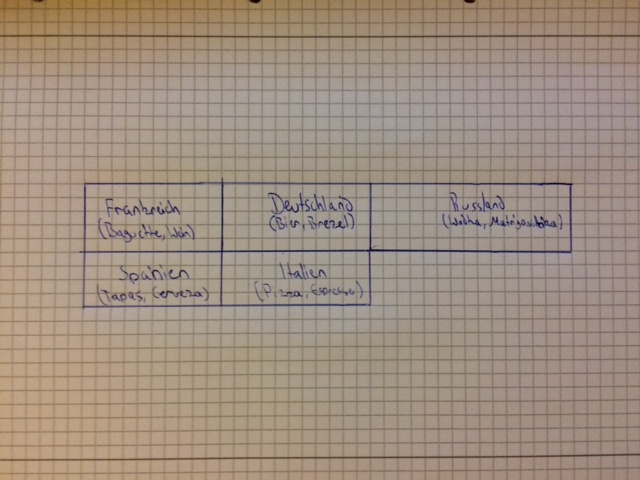 Frankreich
(Baguette, Wein)
Deutschland
(Bier, Brezel)
Russland
(Wodka,
Spanien
(Tapas, Cerveza)
Italien
(Pizza, Espresso)